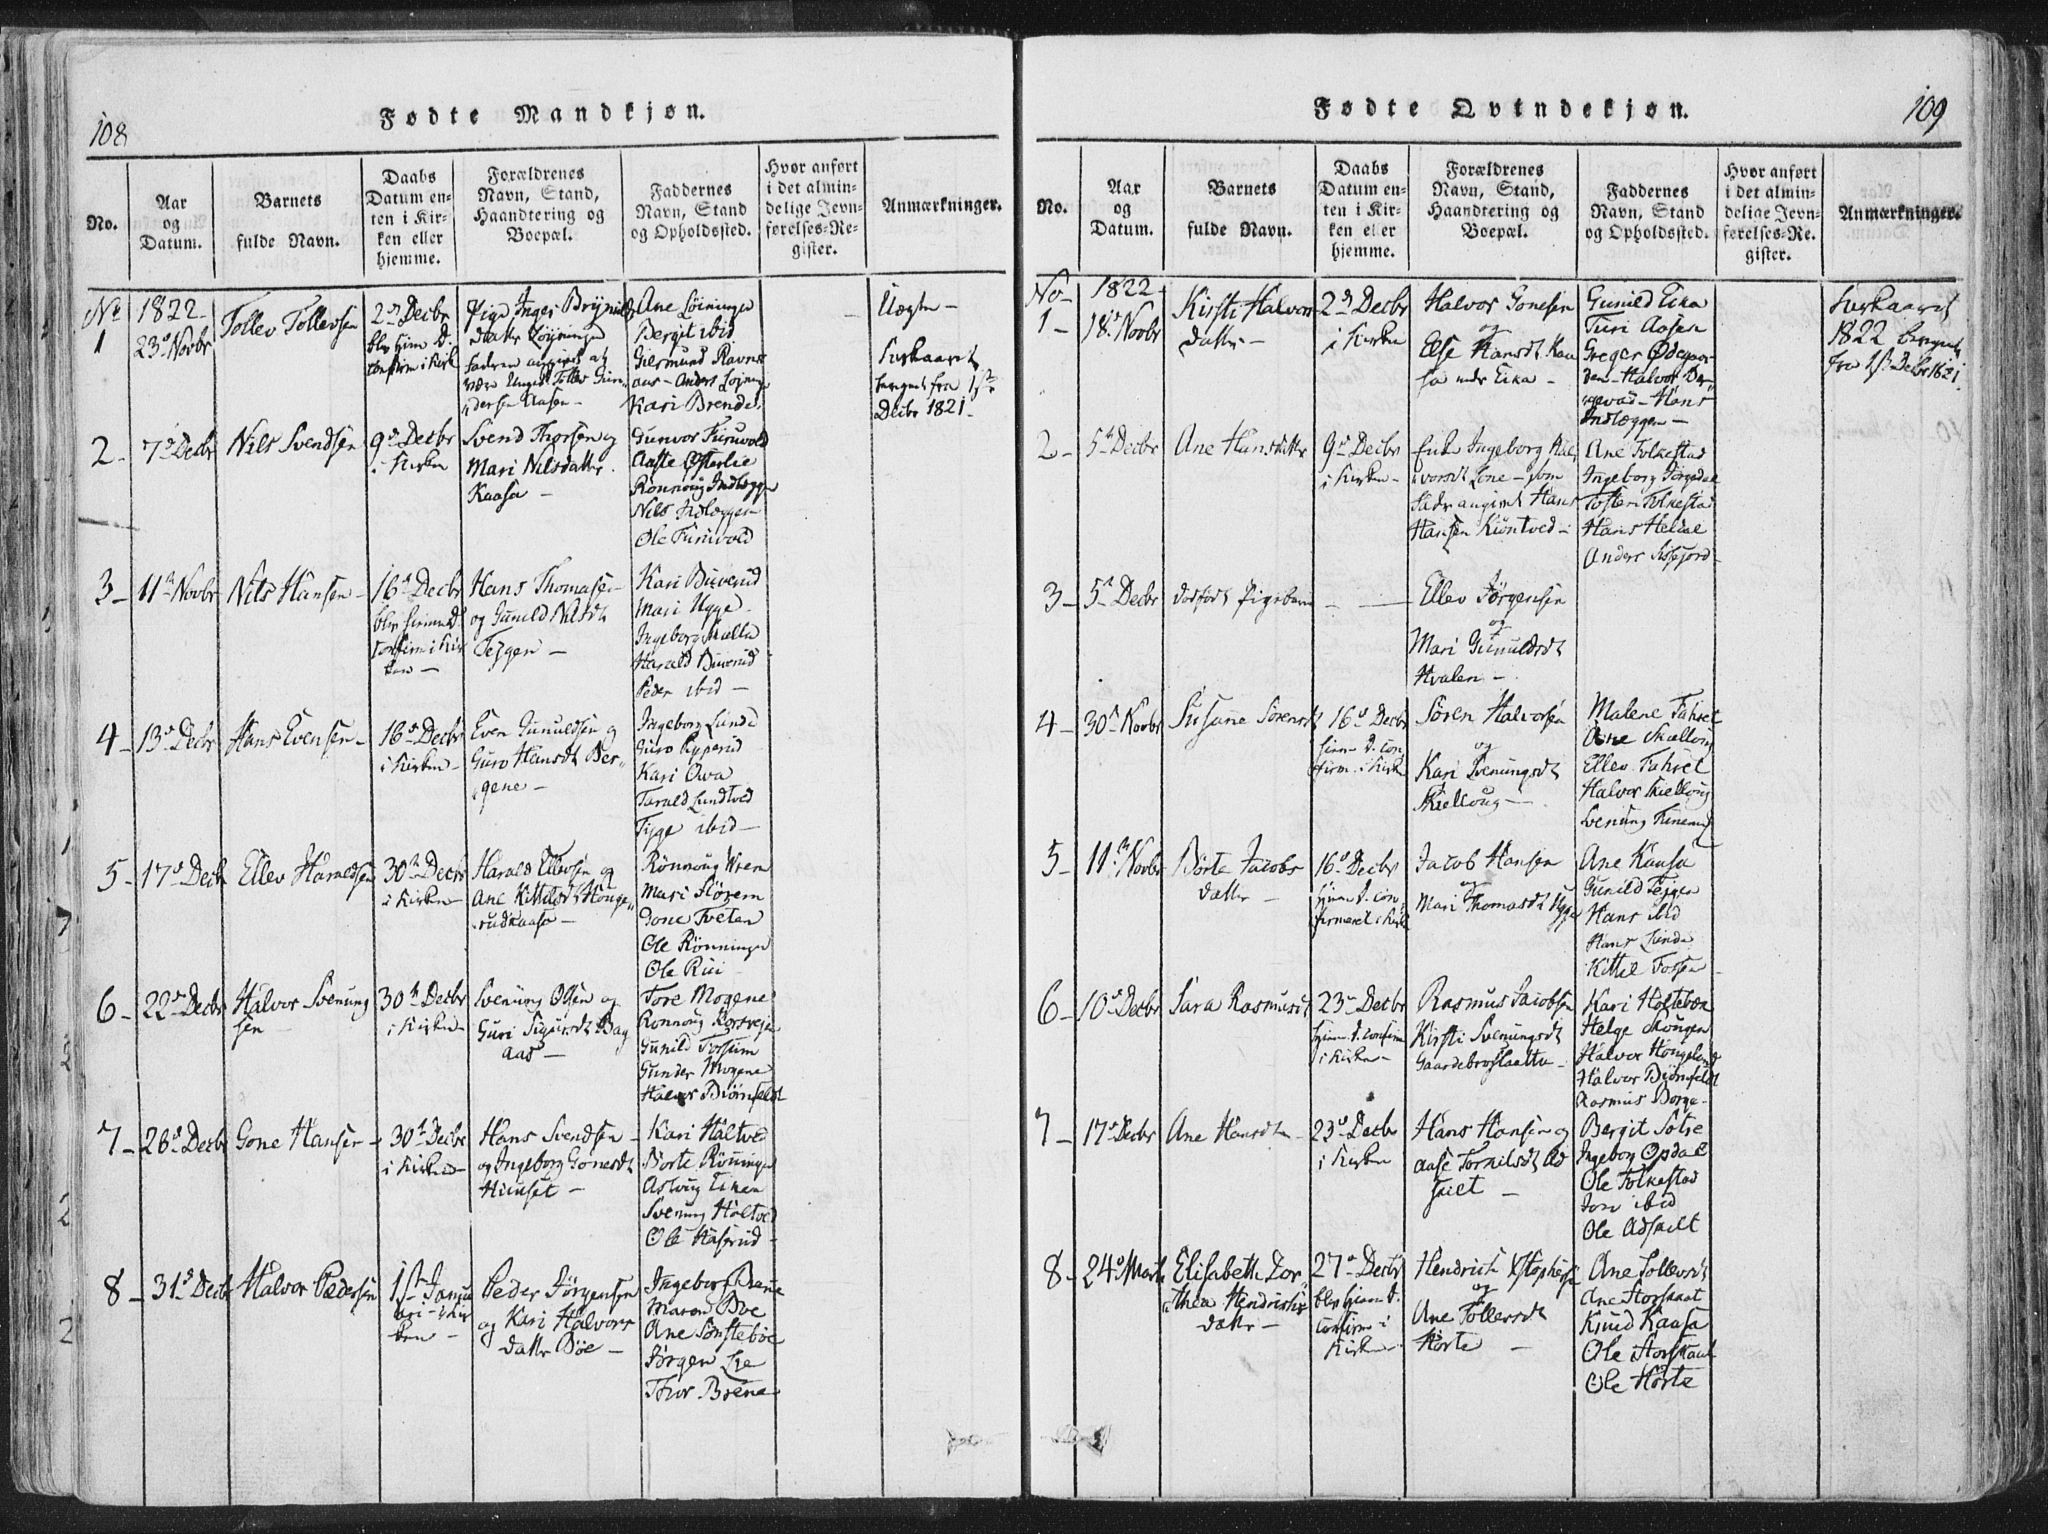 108
Fødte Mandkjøn.
No.
Aar
og
Datum.
Barnets
fulde Navn.
Daabs
Datum en-
ten i Kir-
ken eller
hjemme.
Forældrenes
Navn, Stand,
Haandtering og
Boepæl.
Faddernes
Navn, Stand
og Opholdssted.
Hvor anført
i det almin-
delige Jevn-
førelses-Re-
gister.
Anmærkninger.
1822
1
23d Novbr
Tollev Tollevsen
2d Decbr
blev hjem d.
confirm i Kirk
Pige Inger Brynild
datter Løyninge
Faderen angivet at
være Ungk. Tollev Gun-
dersen Aasen -
Ane Løininge
Bergit ibid
Giermund Ravns-
aas - Anders Løininge
Kari Brende
Uægte -
Kirkeaaret
beregnet fra 1ste
Decbr 1821 -
2 -
7d Decbr
Nils Svendsen
9d Decbr
i Kirken
Svend Thorsen og
Mari Nilsdatter
Kaasa -
Gunvor Furuvold
Aaste Østerlie
Rønnoug Indlæggen
Nils Indlæggen
Ole Furuvold
3 -
11te Novbr
Nils Hansen -
16d Decbr
blev hiemmed.
confirm i Kir
ken -
Hans Thomasen
og Gunild Nilsdt
Tejgen -
Kari Buverud
Mari Ugge
Ingeborg
Harald Buverud
Peder ibid -
4 -
13d Decbr
Hans Evensen -
16d Decbr
i Kirken -
Even Gunuldsen og
Guro Hansdt Ber-
gene -
Ingeborg Lunde
Guro Ryperud
Kari Owa
Tarald Lundtved
Tjge ibid -
5 -
17d Decbr
Ellev Haraldsen
30te Decbr
i Kirken -
Harald Ellevsen og
Ane Kittilsdt Houge-
rudkaasa -
Rønnoug Wrem
Mari Fløgem
Gone Tveten
Ole Rønningen
Ole Rui
6 -
22d Decbr
Halvor Svenung
sen -
30te Decbr
i Kirken
Svenung Olsen og
Guri Sigursdt Bag
aas -
Tore Mogene
Ronnoug Korsvejen
Gunild Fossum
Gunder Mogene
Halvor Biørnfeldt
7 -
28d Decbr
Gone Hansen -
30te Decbr
i Kirken
Hans Svendsen -
og Ingeborg Gonesdt
Huuset -
Kari Holtved
Børte Rønningen
Aslaug Eiken
Svenung Holtved
Ole Haserud -
8 -
31d Decbr
Halvor Pedersen
1ste Janu
ari i Kir
ken -
Peder Jørgensen
og Kari Halvors
datter Bøe -
Ingeborg Brene
Maren Boe
Ane Sønstebøe
Jørgen Lie
Thor Brene
109
Fødte Qvindekjøn.
No.
Aar
og
Datum.
Barnets
fulde Navn.
Daabs
Datum en-
ten i Kir-
ken eller
hjemme.
Forældrenes
Navn, Stand,
Haandtering og
Boepæl.
Faddernes
Navn, Stand
og Opholdssted.
Hvor anført
i det almin-
delige Jevn-
førelses-Re-
gister.
Anmærkninger.
No
1822
1 -
18d Novbr
Kirsti Halvors
datter -
2d Decbr
i Kirken
Halvor Gonesen
og
Else Hansdt Kaa
sa under Eika -
Gunild Eika
Turi Aasen
Greger Ødegaar-
den - Halvor Ber-
gevad - Hans
Indlæggen -
Kirkeaaret
1822 beregnet
fra 1ste Decbr 1821
2 -
5te Decbr
Ane Hansdatter
9d Decbr
i Kirken -
Enke Ingeborg Hal-
vorsdt Lone - som
Fader angivet Hans
Hansen Kiøntved -
Ane Folkestad
Ingeborg Jorgedal
Tosten Folkestad
Hans Heldal
Anders
3 -
5te Decbr
dødfødt Pigebarn
- -
Ellev Jørgensen
og
Mari Gunuldsdt
Hvalen -
4 -
30te Novbr
Susanne Sørensdt
16d Decbr
hiem d. con
firm. i Kirken
Sören Halvorsen
og
Kari Svenungsdt
Skielloug -
Malene Fahret
Ane Skielloug
Ellev Fahret
Halvor Skielloug
Svenung
5 -
11te Novbr
Börte Jacobs
datter -
16d Decbr
hjem d. con
firmeret i Kirk
Jacob Hansen
og
Mari Thomasdt Ugge
Ane Kaasa
Gunild Tejgen
Hans ibid
Hans Lunde
Kittil Fossen
6 -
10d Decbr
Sara Rasmusdt
23d Decbr
hjem d. confirm
i Kirken -
Rasmus Jacobsen
Kirsti Svenungsdt
Gaardebroslaatta -
Kari Holtebøe
Helge Skougen
Halvor Hougeland
Halvor Biørnfeldt
Rasmus Borge -
7 -
17d Decbr
Ane Hansdt -
23d Decbr
i Kirken
Hans Hansen og
Aase Torkilsdt Ad
skilt -
Bergit Solse
Ingeborg Opdal
Ole Folkestad
Jon ibid
Ole Adskilt
8 -
24d Marts
Elisabeth Dor-
thea Hendriks
datter -
27d Decbr
blev hjem d.
confirm i
Kirken
Hendrich Xstophersen
og
Ane Tollevsdt
Hørte -
Ane Tollevsdt
Ane Storskaat
Knud Kaasa
Ole Storskaat
Ole Hörte